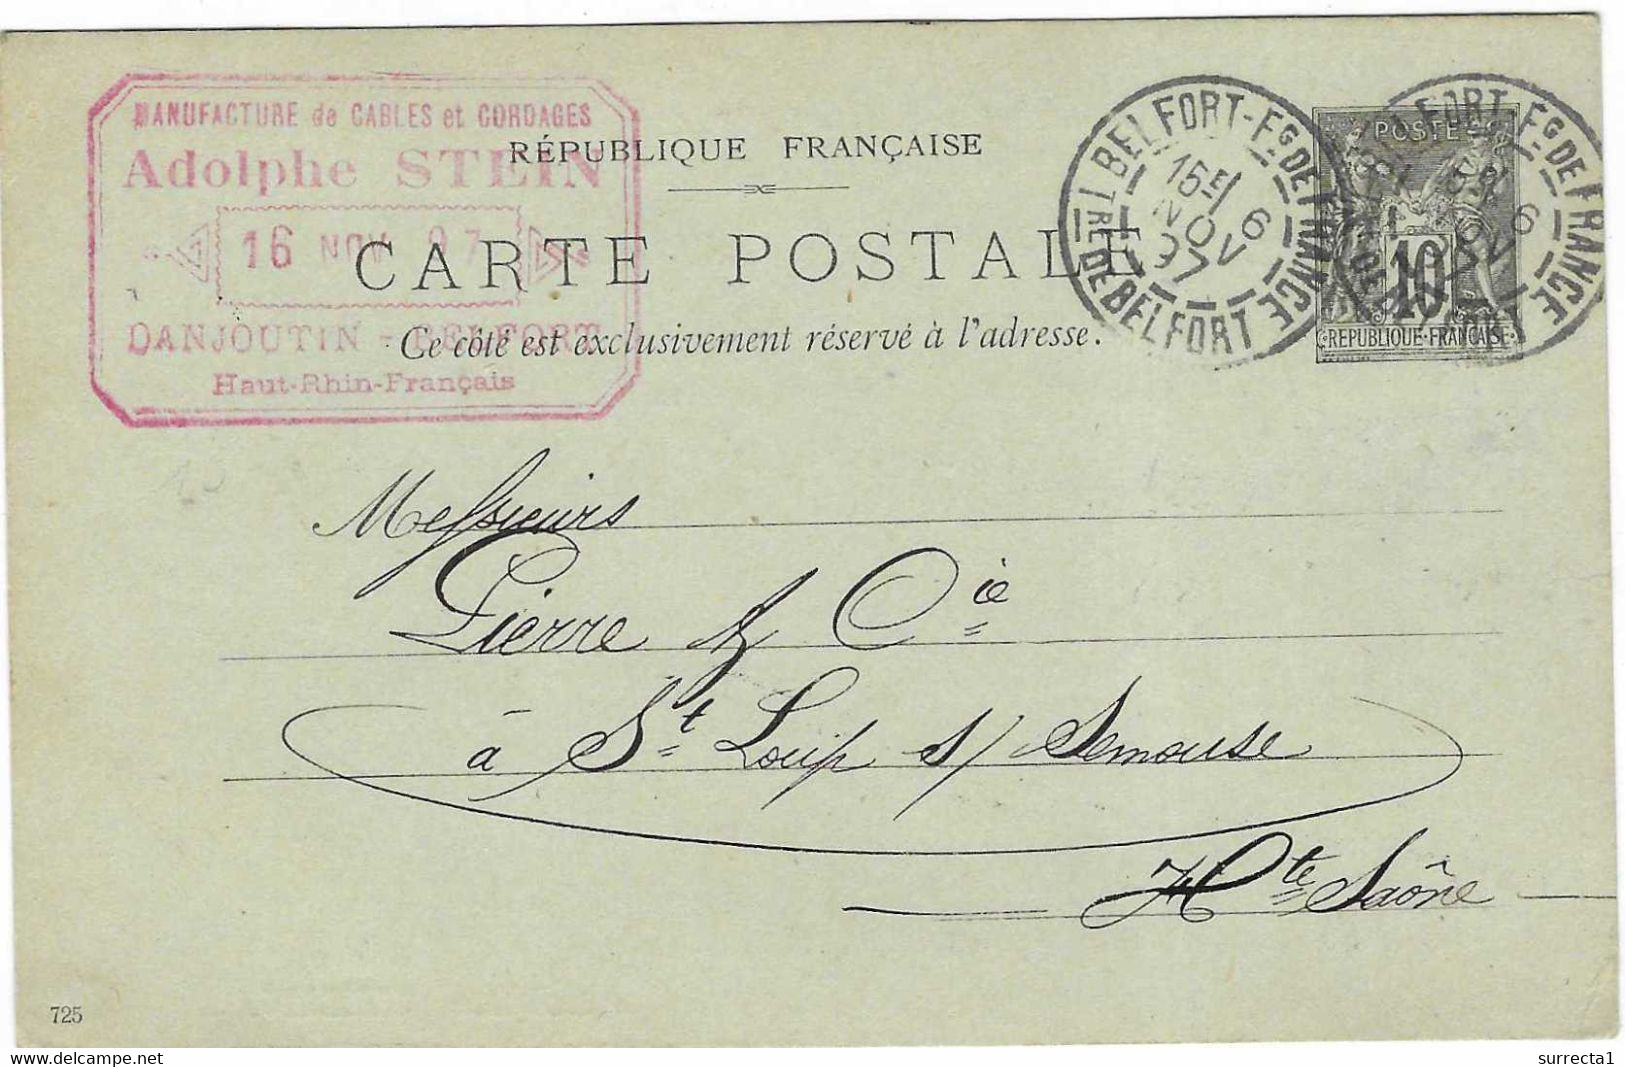 MANUFACTURE de CABLES et CORDAGES
Adolphe STEIN
16 NOV 97
DANJOUTIN - BELFORT
Haut-Rhin-Français
RÉPUBLIQUE FRANÇAISE
CARTE POSTALE
Ce côté est exclusivement réservé à l'adresse.
BELFORT-Fg DE FRANCE
15E
16
NOV
97
TRE DE BELFORT
POSTES
10
REPUBLIQUE·FRANCAISE
Messieurs
Pierre & Cie
à St Loup s/ Semouse
Hte Saône
725
surrecta1